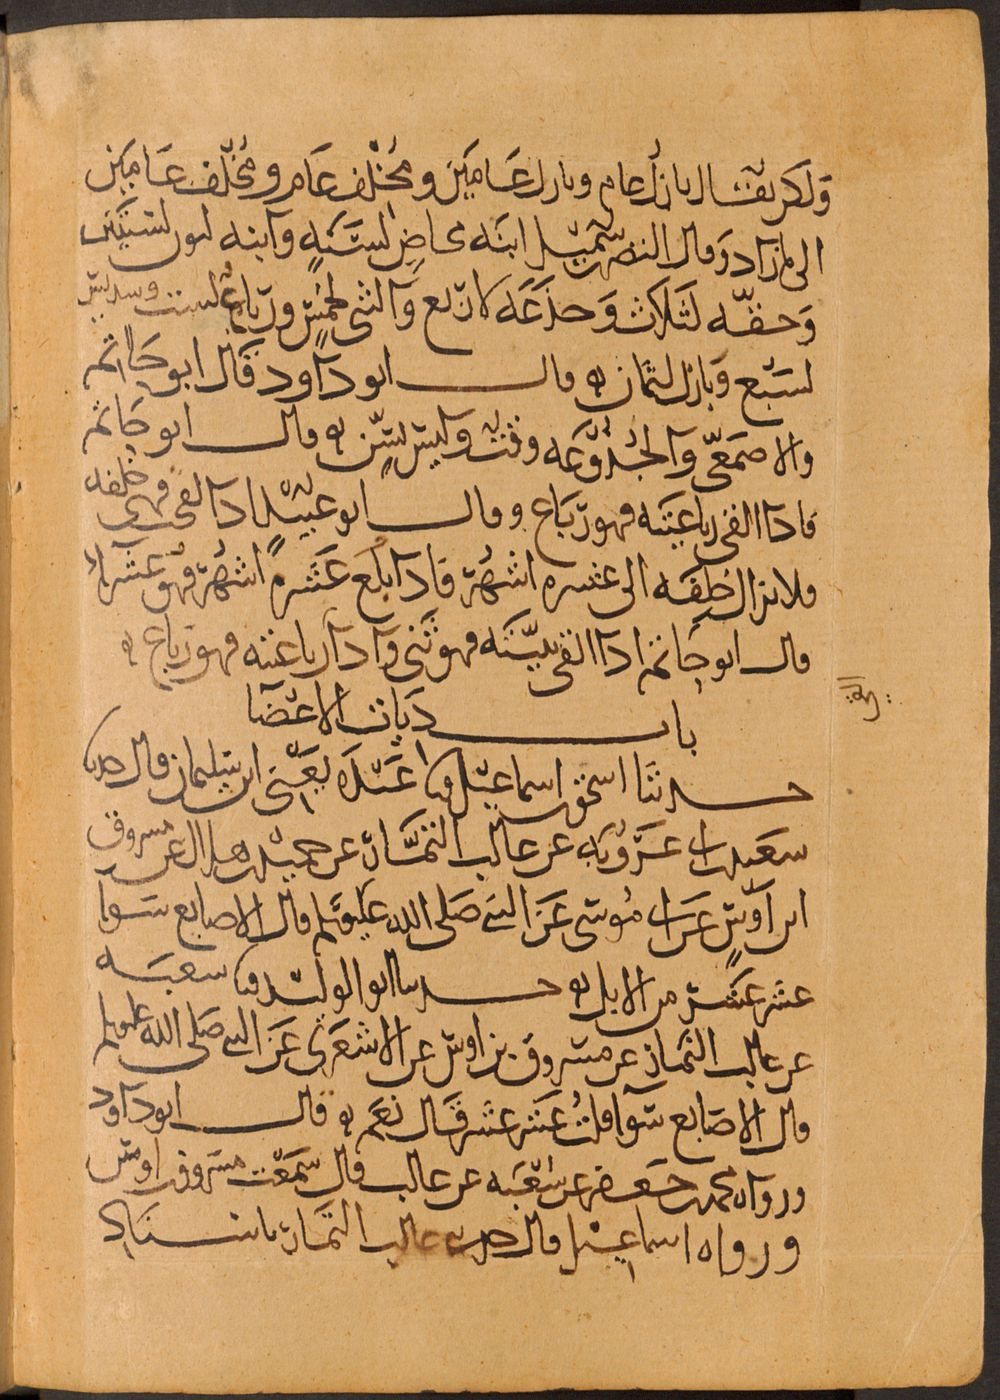 ولكن يقال بازل عام وبازل عامين ومخلف عام ومخلف عامين
الى ما زاد وقال النضر بن شميل ابنة مخاض لسنة وابنة لبون لسنتين
وحقة لثلاث وجذعة لاربع والثني لخمس ورباع لست وسديس
لسبع وبازل لثمان ه قال ابو داود قال ابو حاتم
والاصمعي والجذوعة وقت وليس بسن ه قال ابو حاتم
فاذا القى رباعيته فهو رباع وقال ابو عبيد اذا لقحت فهي خلفة
فلا تزال خلفة الى عشرة اشهر فاذا بلغ عشرة اشهر فهو عشراء
قال ابو حاتم اذا القى ثنيته فهو ثني واذا رباعيته فهو رباع ه
باب ديات الاعضا
حدثنا اسحق بن اسماعيل ثنا عبدة يعني ابن سليمان قال حدثنا
سعيد بن ابي عروبة عن غالب التمار عن حميد بن هلال عن مسروق
ابن اوس عن ابي موسى عن النبي صلى الله عليه وسلم قال الاصابع سوا
عشر عشر من الابل ه حدثنا ابو الوليد ثنا شعبة
عن غالب التمار عن مسروق بن اوس عن الاشعري عن النبي صلى الله عليه وسلم
قال الاصابع سوا قلت عشر عشر قال نعم ه قال ابو داود
ورواه محمد بن جعفر عن شعبة عن غالب قال سمعت مسروق بن اوس
ورواه اسماعيل قال حدثني غالب التمار باسناد